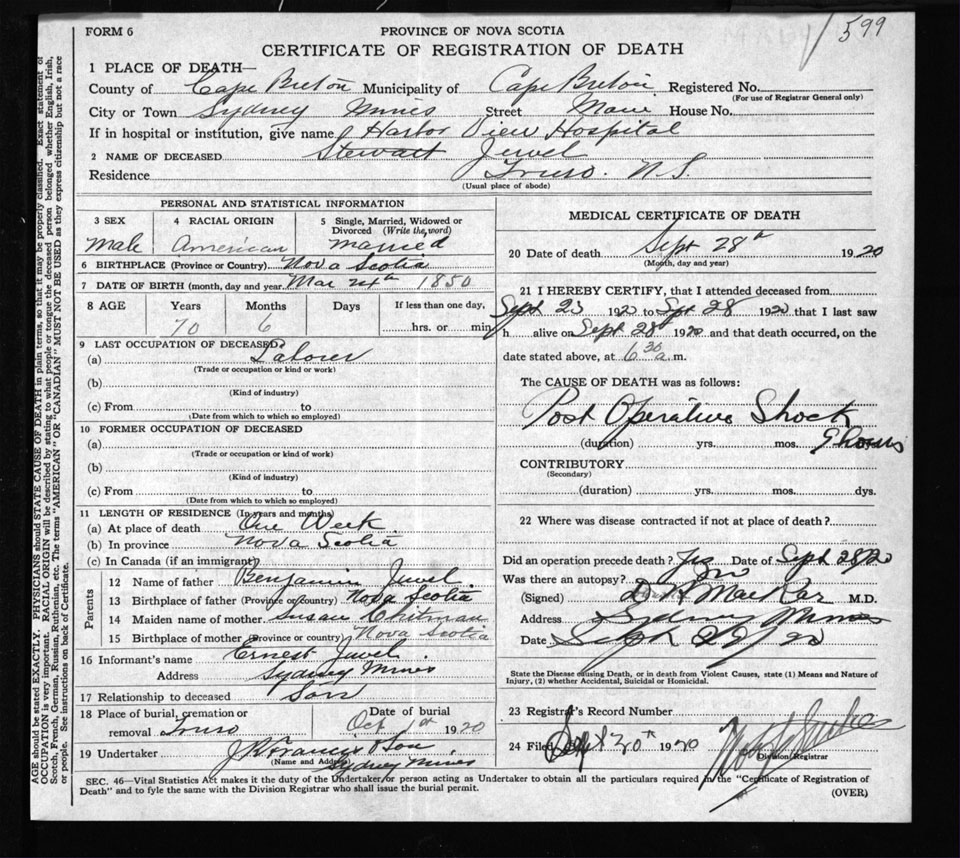 FORM 6
PROVINCE OF NOVA SCOTIA
599
CERTIFICATE OF REGISTRATION OF DEATH
1 PLACE OF DEATH—
County of Cape Breton Municipality of Cape Breton Registered No.
(For use of Registrar General only)
City or Town Sydney Mines Street Main House No.
If in hospital or institution, give name Harbor View Hospital
2 NAME OF DECEASED Stewart Jewel
Residence Truro. N.S.
(Usual place of abode)
PERSONAL AND STATISTICAL INFORMATION
3 SEX 4 RACIAL ORIGIN 5 Single, Married, Widowed or Divorced (Write the word)
Male American Married
6 BIRTHPLACE (Province or Country) Nova Scotia
7 DATE OF BIRTH (month, day and year) Mar 24th 1850
8 AGE Years Months Days If less than one day,
70 6 hrs. or min.
9 LAST OCCUPATION OF DECEASED
(a) Laborer
(Trade or occupation or kind or work)
(b)
(Kind of industry)
(c) From to
(Date from which to which so employed)
10 FORMER OCCUPATION OF DECEASED
(a)
(Trade or occupation or kind of work)
(b)
(Kind of industry)
(c) From to
(Date from which to which so employed)
11 LENGTH OF RESIDENCE (In years and months)
(a) At place of death One Week
(b) In province Nova Scotia
(c) In Canada (if an immigrant)
Parents
12 Name of father Benjamin Jewel
13 Birthplace of father (Province or country) Nova Scotia
14 Maiden name of mother Susan Whitman
15 Birthplace of mother (Province or country) Nova Scotia
16 Informant's name Ernest Jewel
Address Sydney Mines
17 Relationship to deceased Son
18 Place of burial, cremation or removal Truro Date of burial Oct 1st 1920
19 Undertaker J R Francis & Son
(Name and Address) Sydney Mines
MEDICAL CERTIFICATE OF DEATH
20 Date of death Sept 28th 1920
(Month, day and year)
21 I HEREBY CERTIFY, that I attended deceased from
Sept 23 1920 to Sept 28 1920 that I last saw
h alive on Sept 28 1920 and that death occurred, on the
date stated above, at 6 30 a.m.
The CAUSE OF DEATH was as follows:
Post Operative Shock
(duration) yrs. mos. 9 hours
CONTRIBUTORY
(Secondary)
(duration) yrs. mos. dys.
22 Where was disease contracted if not at place of death?
Did an operation precede death? Yes Date of Sept 28/20
Was there an autopsy? No
(Signed) M.D.
Address Sydney Mines
Date Sept 29/20
State the Disease causing Death, or in death from Violent Causes, state (1) Means and Nature of
Injury, (2) whether Accidental, Suicidal or Homicidal.
23 Registrar's Record Number
24 Filed Sept 30th 1920
Division Registrar
SEC. 46—Vital Statistics Act makes it the duty of the Undertaker or person acting as Undertaker to obtain all the particulars required in the "Certificate of Registration of
Death" and to fyle the same with the Division Registrar who shall issue the burial permit.
(OVER)
AGE should be stated EXACTLY. PHYSICIANS should STATE CAUSE OF DEATH in plain terms, so that it may be properly classified. Exact statement of
OCCUPATION is very important. RACIAL ORIGIN will be described by stating to what people or tongue the deceased person belonged whether English, Irish,
Scotch, French, German, Russian, Ruthenian, etc. The terms "AMERICAN" OR "CANADIAN" MUST NOT BE USED as they express citizenship but not a race
or people. See instructions on back of Certificate.